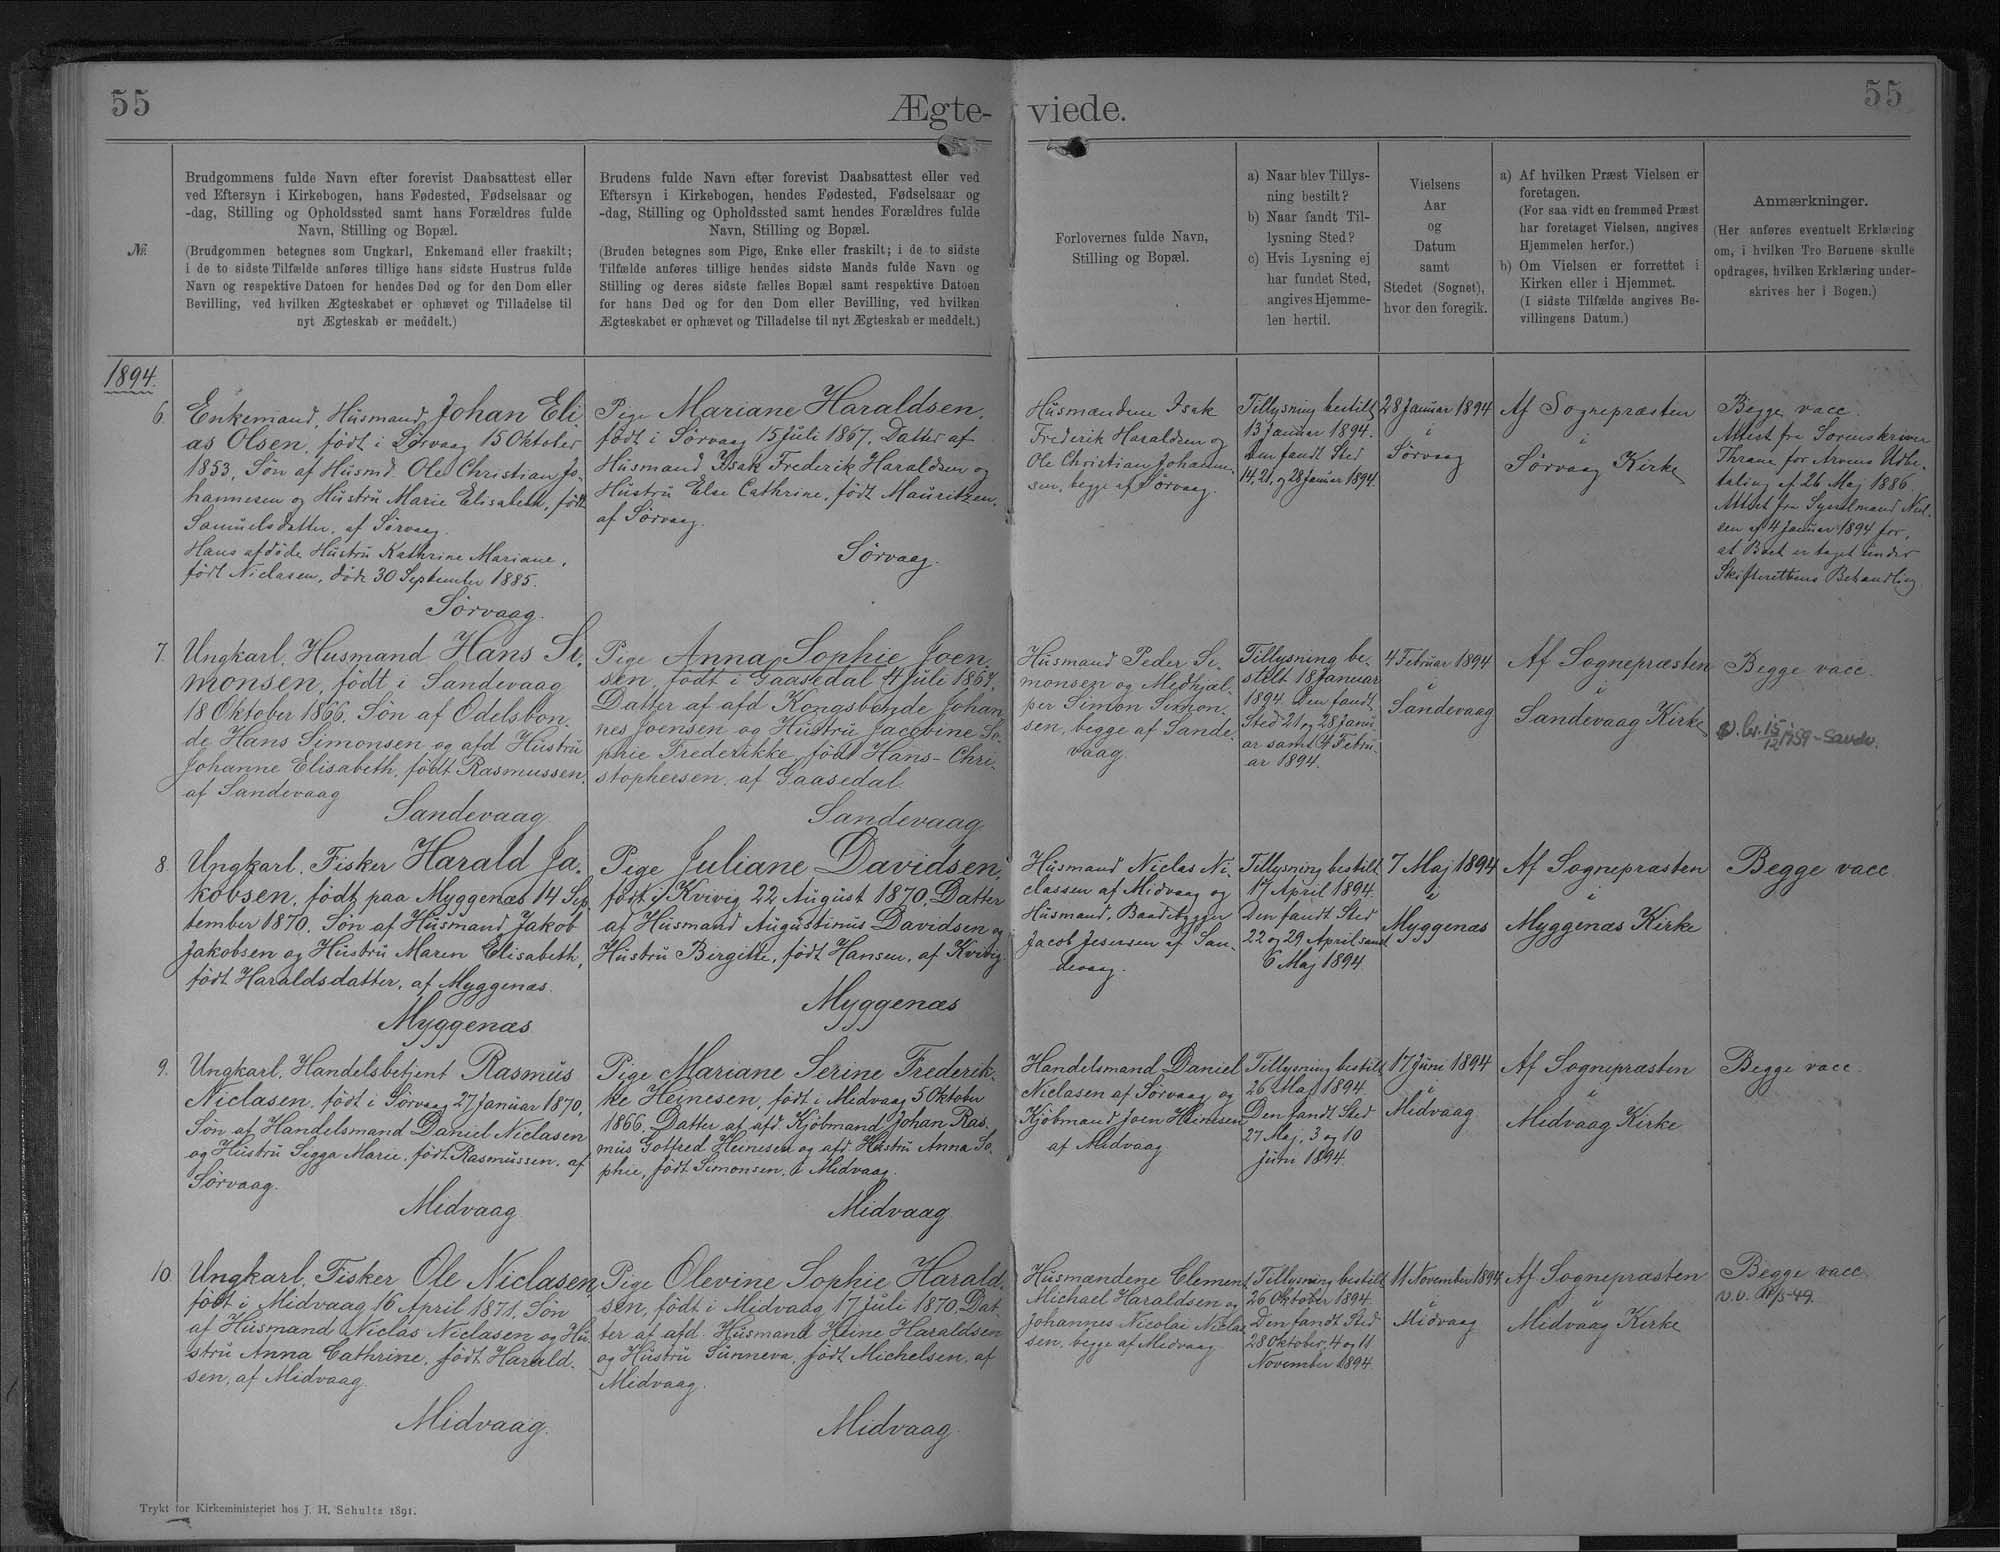 55
Ægte-
viede.
55
Nr.
Brudgommens fulde Navn efter forevist Daabsattest eller
ved Eftersyn i Kirkebogen, hans Fødested, Fødselsaar og
-dag, Stilling og Opholdssted samt hans Forældres fulde
Navn, Stilling og Bopæl.
(Brudgommen betegnes som Ungkarl, Enkemand eller fraskilt;
i de to sidste Tilfælde anføres tillige hans sidste Hustrus fulde
Navn og respektive Datoen for hendes Død og for den Dom eller
Bevilling, ved hvilken Ægteskabet er ophævet og Tilladelse til
nyt Ægteskab er meddelt.)
Brudens fulde Navn efter forevist Daabsattest eller ved
Eftersyn i Kirkebogen, hendes Fødested, Fødselsaar og
-dag, Stilling og Opholdssted samt hendes Forældres fulde
Navn, Stilling og Bopæl.
(Bruden betegnes som Pige, Enke eller fraskilt; i de to sidste
Tilfælde anføres tillige hendes sidste Mands fulde Navn og
Stilling og deres sidste fælles Bopæl samt respektive Datoen
for hans Død og for den Dom eller Bevilling, ved hvilken
Ægteskabet er ophævet og Tilladelse til nyt Ægteskab er meddelt.)
Forlovernes fulde Navn,
Stilling og Bopæl.
a) Naar blev Tillys-
ning bestilt?
b) Naar fandt Til-
lysning Sted?
c) Hvis Lysning ej
har fundet Sted,
angives Hjemme-
len hertil.
Vielsens
Aar
og
Datum
samt
Stedet (Sognet),
hvor den foregik.
a) Af hvilken Præst Vielsen er
foretagen.
(For saa vidt en fremmed Præst
har foretaget Vielsen, angives
Hjemmelen herfor.)
b) Om Vielsen er forrettet i
Kirken eller i Hjemmet.
(I sidste Tilfælde angives Be-
villingens Datum.)
Anmærkninger.
(Her anføres eventuelt Erklæring
om, i hvilken Tro Børnene skulle
opdrages, hvilken Erklæring under-
skrives her i Bogen.)
1894.
6.
Enkemand, Husmand Johan Eli
as Olsen, født i Sørvaag 15 Oktober
1853, Søn af Husmd. Ole Christian Jo-
hannesen og Hustru Marie Elisabeth, født
Samuelsdatter, af Sørvaag.
Hans afdøde Hustru Kathrine Mariane,
født Niclasen, døde 30 September 1885.
Sørvaag.
Pige Mariane Haraldsen,
født i Sørvaag 15 Juli 1867, Datter af
Husmand Isak Frederik Haraldsen og
Hustru Else Cathrine, født Mauritzen,
af Sørvaag.
Sørvaag.
Husmændene Isak
Frederik Haraldsen og
Ole Christian Johanne-
sen, begge af Sørvaag.
Tillysning bestilt
13 Januar 1894.
Den fandt Sted
14, 21, og 28 Januar 1894.
28 Januar 1894
i
Sørvaag
Af Sognepræsten
i
Sørvaag Kirke
Begge vacc.
Attest fra Sorenskriver
Thrane for Arvens Udbe-
taling af 26 Maj 1886.
Attest fra Sysselmand Niel-
sen af 4 Januar 1894 for,
at Boet er taget under
Skifterettens Behandling.
7.
Ungkarl, Husmand Hans Si-
monsen, født i Sandevaag
18 Oktober 1866, Søn af Odelsbon-
de Hans Simonsen og afd Hustru
Johanne Elisabeth, født Rasmussen,
af Sandevaag
Sandevaag
Pige Anna Sophie Joen-
sen, født i Gaasedal 4 Juli 1867,
Datter af afd Kongsbonde Johan
nes Joensen og Hustru Jacobine So-
phie Frederikke, født Hans-Chri-
stophersen, af Gaasedal.
Sandevaag
Husmand Peder Si-
monsen og Medhjæl-
per Simon Simon-
sen, begge af Sande-
vaag.
Tillysning be-
stilt 18 Januar
1894. Den fandt
Sted 21 og 28 Janu-
ar samt 4 Febru-
ar 1894.
4 Februar 1894
i
Sandevaag
Af Sognepræsten
i
Sandevaag Kirke
Begge vacc.
8.
Ungkarl, Fisker Harald Ja-
kobsen, født paa Myggenæs 14 Sep
tember 1870, Søn af Husmand Jakob
Jakobsen og Hustru Maren Elisabeth,
født Haraldsdatter, af Myggenæs.
Myggenæs
Pige Juliane Davidsen,
født i Kvivig 22 August 1870, Datter
af Husmand Augustinus Davidsen og
Hustru Birgitte, født Hansen, af Kvivig
Myggenæs
Husmand Niclas Ni-
classen af Midvaag og
Husmand, Baadebygger
Jacob Jesersen af San-
devaag.
Tillysning bestilt
17 April 1894.
Den fandt Sted
22 og 29 April samt
6 Maj 1894
7 Maj 1894
i
Myggenæs
Af Sognepræsten
i
Myggenæs Kirke
Begge vacc.
9.
Ungkarl, Handelsbetjent Rasmus
Niclasen, født i Sørvaag 27 Januar 1870,
Søn af Handelsmand Daniel Niclasen
og Hustru Sigga Marie, født Rasmussen, af
Sørvaag.
Midvaag
Pige Mariane Serine Frederik-
ke Heinesen, født i Midvaag 5 Oktober
1866, Datter af afd. Kjøbmand Johan Ras-
mus Gotfred Heinesen og afd. Hustru Anna So-
phie, født Simonsen, i Midvaag.
Midvaag
Handelsmand Daniel
Niclasen af Sørvaag og
Kjøbmand Joen Heinesen
af Midvaag
Tillysning bestilt
26 Maj 1894.
Den fandt Sted
27 Maj, 3 og 10
Juni 1894.
17 Juni 1894
i
Midvaag
Af Sognepræsten
i
Midvaag Kirke
Begge vacc.
10.
Ungkarl, Fisker Ole Niclasen
født i Midvaag 16 April 1871, Søn
af Husmand Niclas Niclasen og Hu-
stru Anna Cathrine, født Harald-
sen, af Midvaag.
Midvaag.
Pige Olevine Sophie Harald-
sen, født i Midvaag 17 Juli 1870, Dat
ter af afd. Husmand Heine Haraldsen
og Hustru Sunneva, født Michelsen, af
Midvaag.
Midvaag
Husmændene Clement
Michael Haraldsen og
Johannes Nicolai Nicla-
sen, begge af Midvaag
Tillysning bestilt
26 Oktober 1894.
Den fandt Sted
28 Oktober, 4 og 11
November 1894.
11 November 1894
i
Midvaag
Af Sognepræsten
i
Midvaag Kirke
Begge vacc.
Trykt for Kirkeministeriet hos J. H. Schultz 1891.